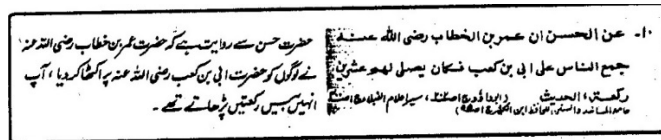 ۱۰۔ عن الحسن ان عمر بن الخطاب رضی الله عنه
جمع الناس علی ابی بن کعب فکان یصلی لهم عشرین
رکعة، الحدیث (ابوداؤد ج سیر اعلام النبلاء ج
جامع المسانید والسنن للحافظ ابن کثیر ج
حضرت حسن سے روایت ہے کہ حضرت عمر بن خطاب رضی اللہ عنہ
نے لوگوں کو حضرت ابی بن کعب رضی اللہ عنہ پر اکٹھا کر دیا، آپ
انہیں بیس رکعتیں پڑھاتے تھے۔